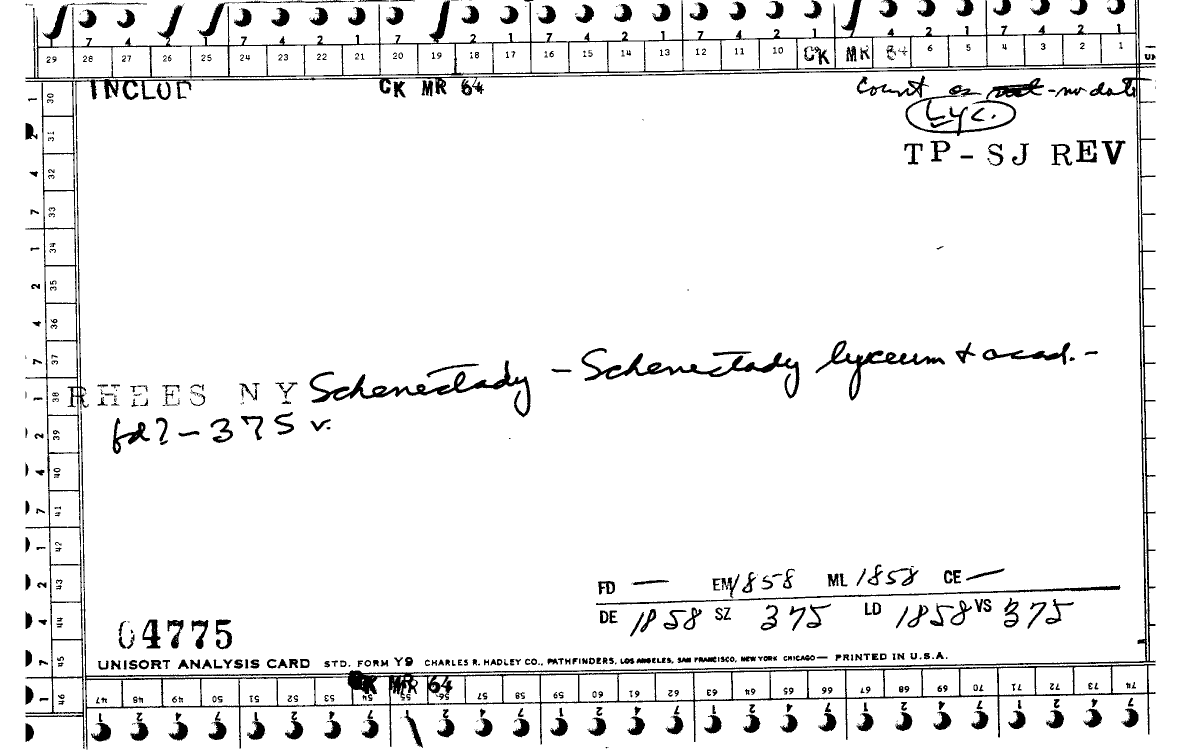 7 4 2 1 7 4 2 1 7 2 1 7 4 2 1 7 4 2 1 4 2 1 7 4 2 1
29 28 27 26 25 24 23 22 21 20 19 18 17 16 15 14 13 12 11 10 CK MR 64 6 5 4 3 2 1
INCLUD CK MR 64 Count as -no date
Lyc.
TP-SJ REV
1 30
2 31
4 32
7 33
1 34
2 35
4 36
7 37
1 38
2 39
4 40
7 41
1 42
2 43
4 44
7 45
1 46
RHEES NY Schenectady - Schenectady lyceum + acad. -
fd? - 375 v.
FD — EM 1858 ML 1858 CE —
DE 1858 SZ 375 LD 1858 VS 375
04775
UNISORT ANALYSIS CARD STD. FORM Y9 CHARLES R. HADLEY CO., PATHFINDERS, LOS ANGELES, SAN FRANCISCO, NEW YORK CHICAGO — PRINTED IN U.S.A.
CK MR 64
47 48 49 50 51 52 53 54 55 56 57 58 59 60 61 62 63 64 65 66 67 68 69 70 71 72 73 74
1 2 4 7 1 2 4 7 1 2 4 7 1 2 4 7 1 2 4 7 1 2 4 7 1 2 4 7